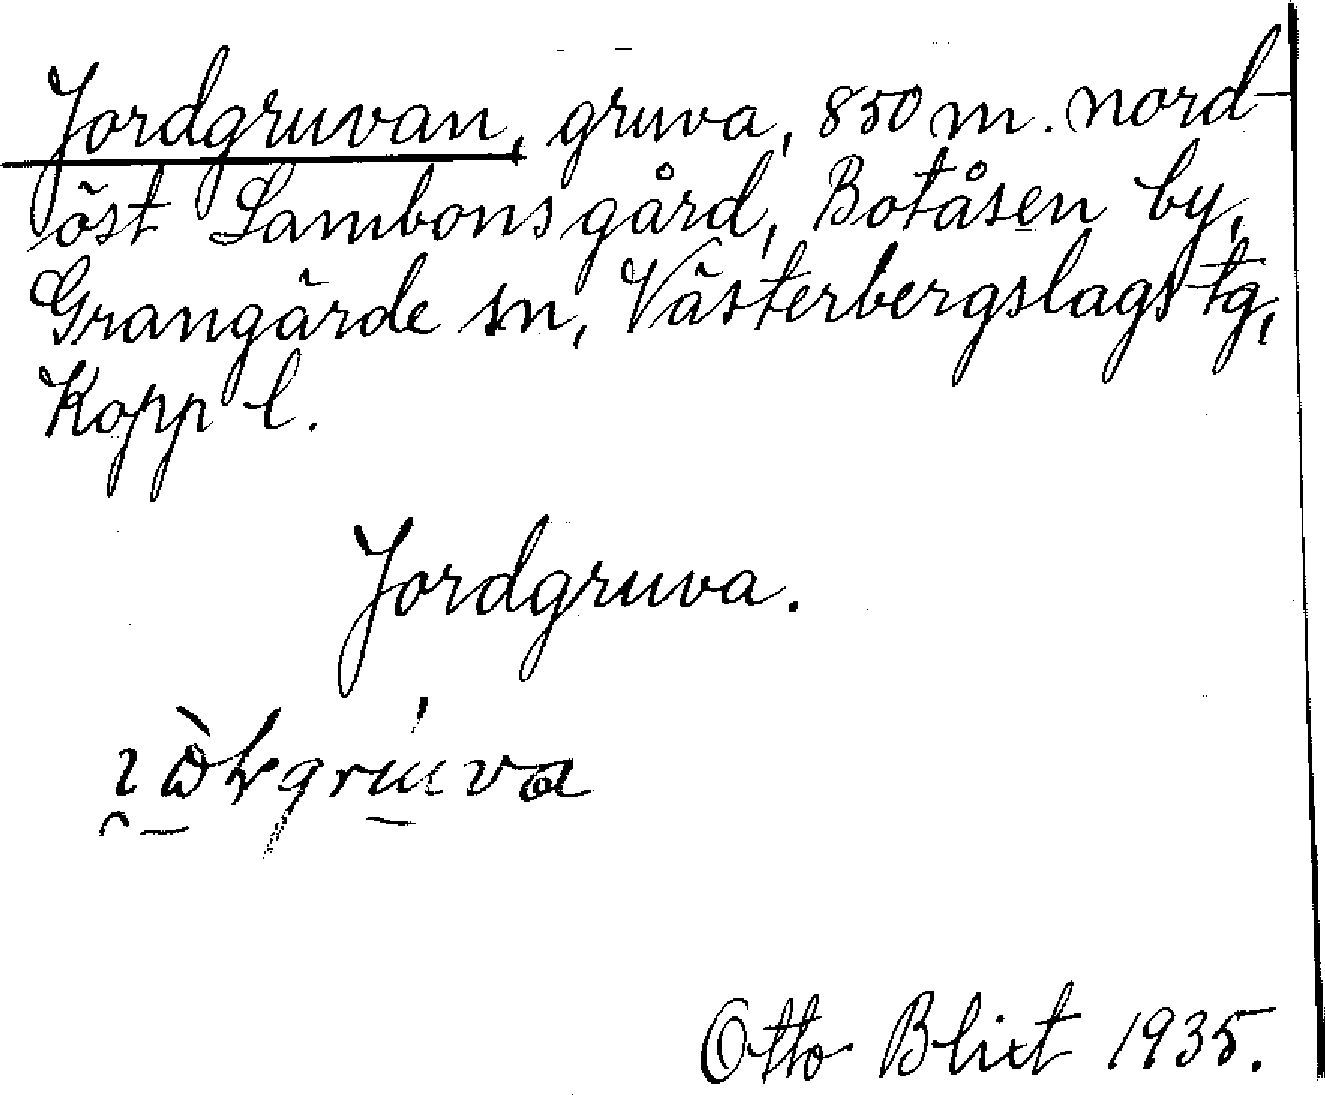 Jordgruvan, gruva, 850 m. nord-
öst Lambonsgård, Botåsen by,
Grangärde sn, Västerbergslags tg,
Kopp l.
Jordgruva.
Otto Blixt 1935.